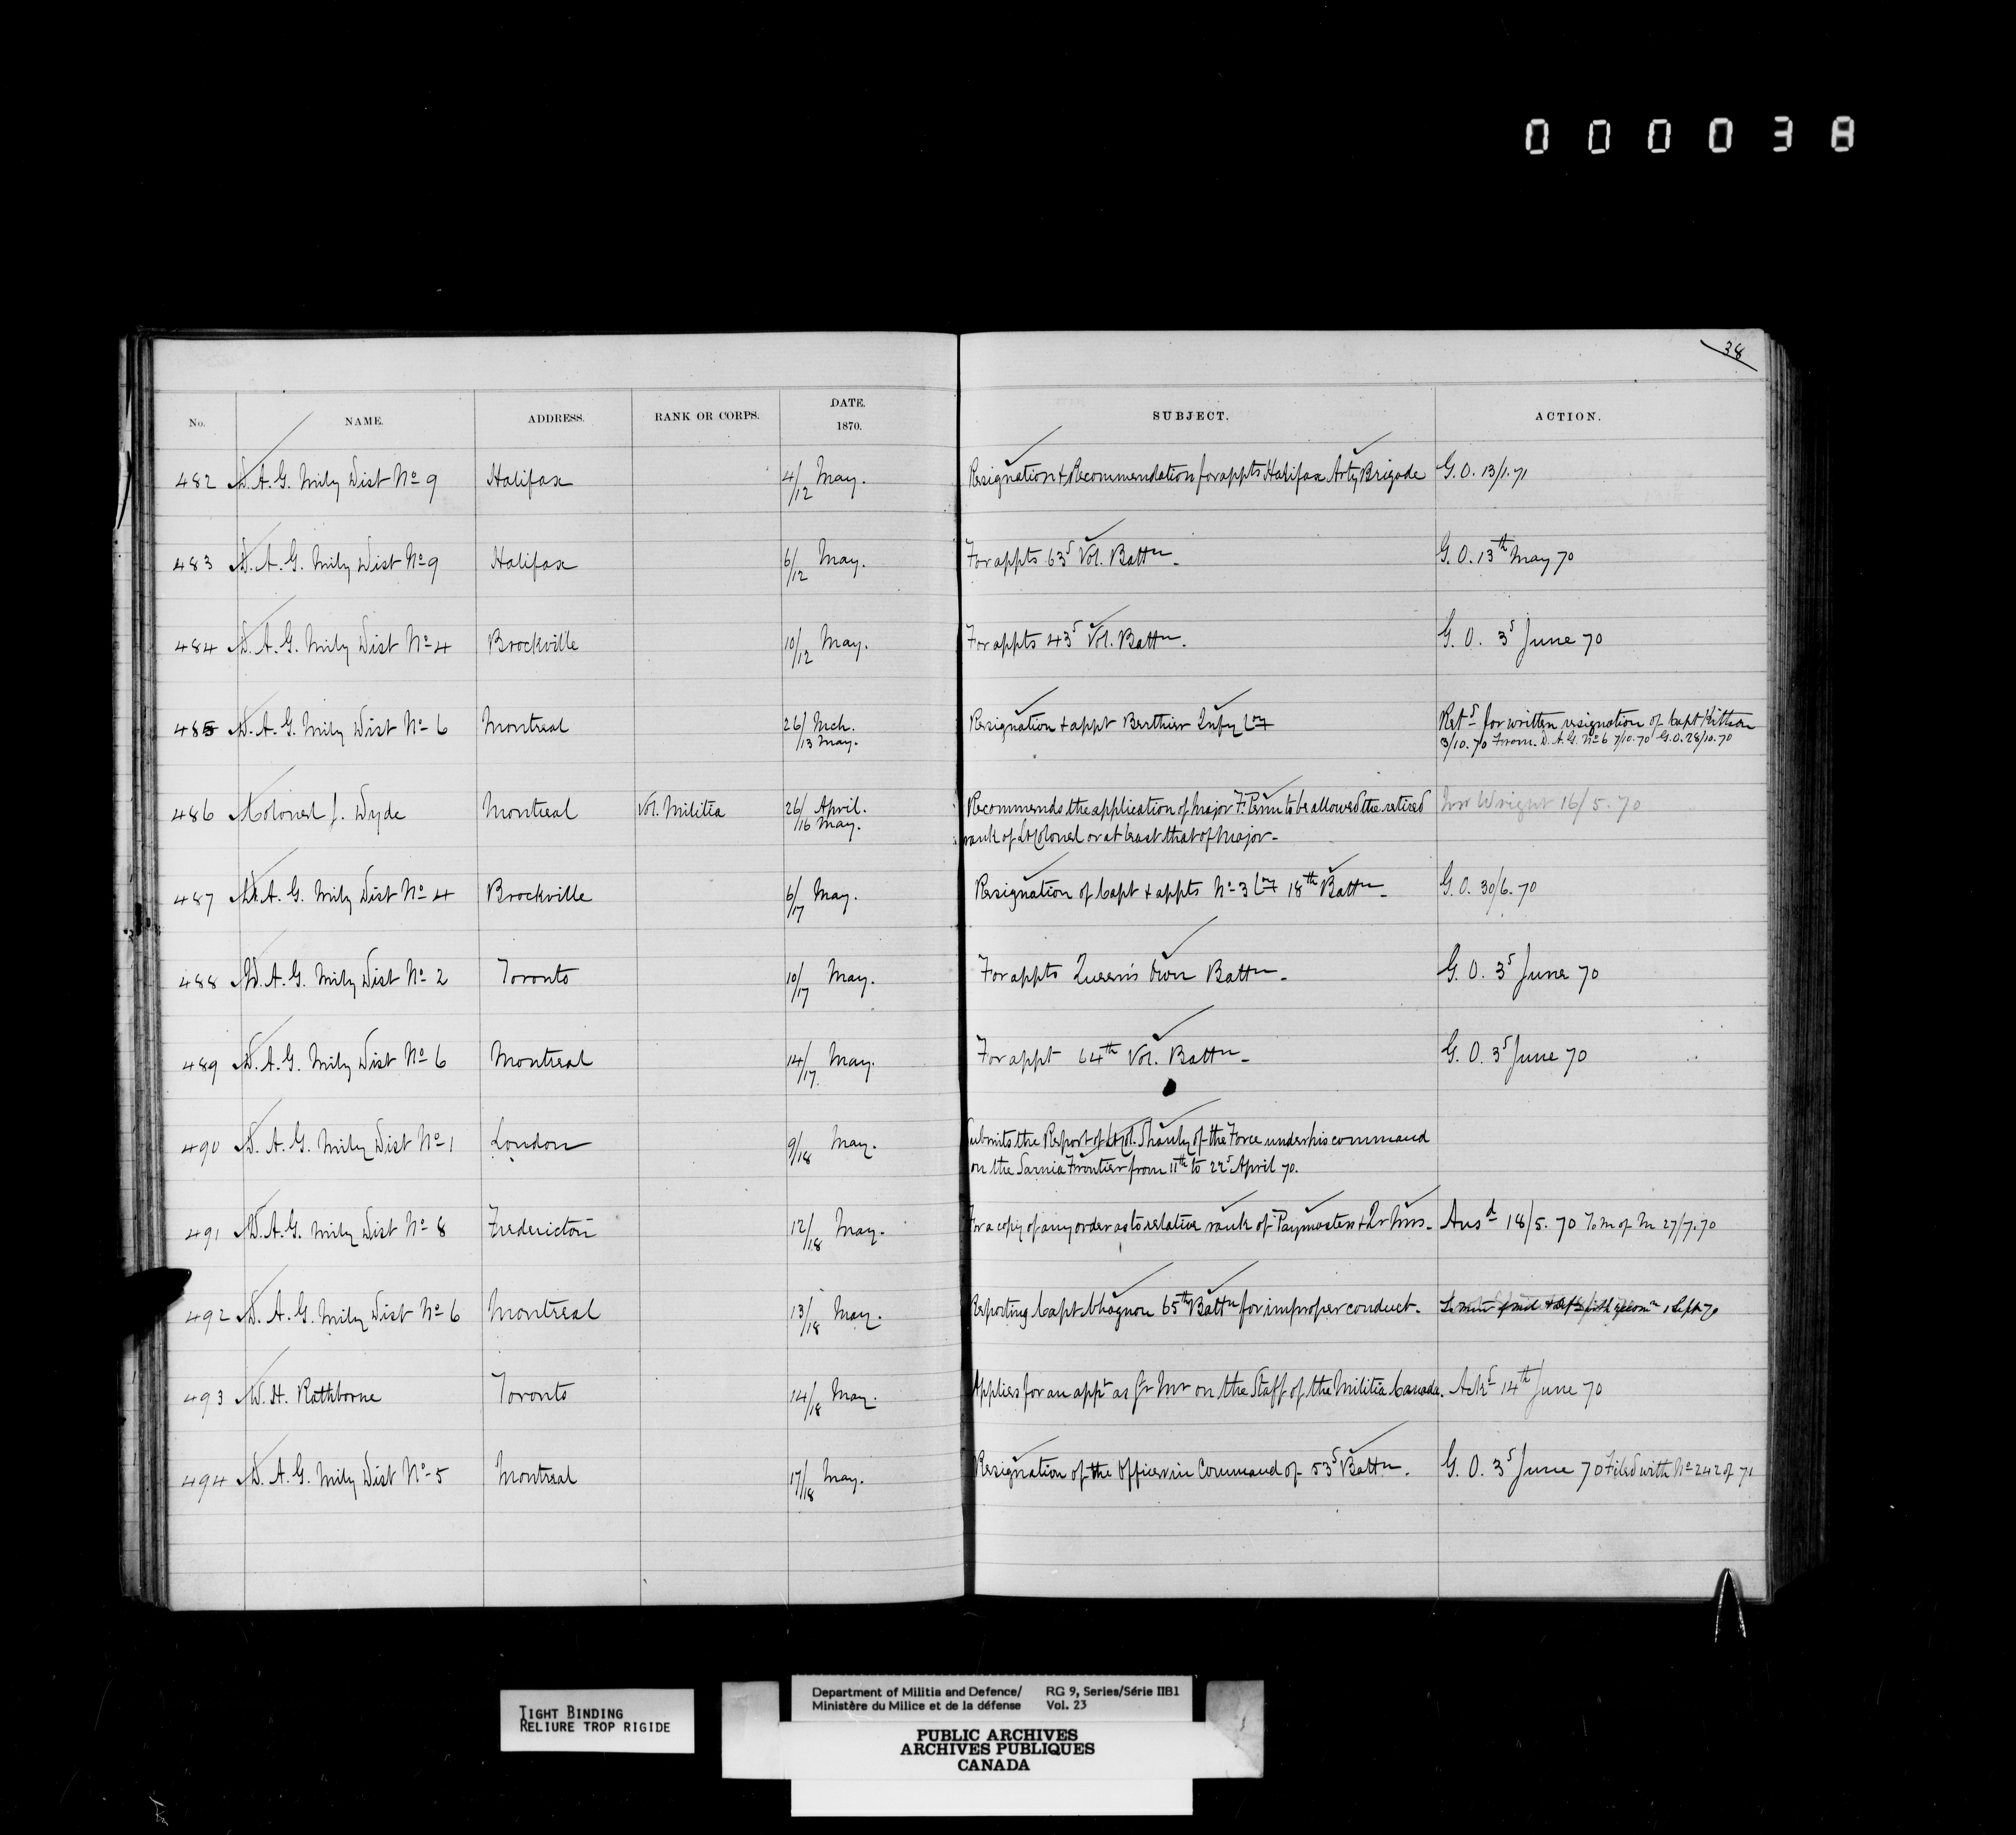 000038
38
No. NAME. ADDRESS. RANK OR CORPS. DATE. 1870. SUBJECT. ACTION.
482 D.A.G. Mily Dist No 9 Halifax 4/12 May. Resignation & Recommendation for appts Halifax Arty Brigade G.O. 13/1.71
483 D.A.G. Mily Dist No 9 Halifax 6/12 May. For appts 63d Vol. Battn. G.O. 13th May 70
484 D.A.G. Mily Dist No 4 Brockville 10/12 May. For appts 43d Vol. Battn. G.O. 3d June 70
485 D.A.G. Mily Dist No 6 Montreal 26/ Mch. Resignation & appt Berthier Infy Coy Retd for written resignation of Capt Kittson
/13 May. 3/10.70 From D.A.G. No 6 7/10.70 G.O. 28/10.70
486 Colonel J. Dyde Montreal Vol. Militia 26/ April. Recommends the application of Major F. Penn to be allowed the retired Mr Wright 16/5.70
/16 May. rank of Lt Colonel or at least that of Major.
487 D.A.G. Mily Dist No 4 Brockville 6/17 May. Resignation of Capt & appts No 3 Coy 18th Battn. G.O. 30/6.70
488 D.A.G. Mily Dist No 2 Toronto 10/17 May. For appts Queen's Own Battn. G.O. 3d June 70
489 D.A.G. Mily Dist No 6 Montreal 14/17 May. For appt 64th Vol. Battn. G.O. 3d June 70
490 D.A.G. Mily Dist No 1 London 9/18 May. Submits the Report of Lt Col. Shanly of the Force under his command
on the Sarnia Frontier from 11th to 22d April 70.
491 D.A.G. Mily Dist No 8 Fredericton 12/18 May. For a copy of any order as to relative rank of Paymasters & Qr Mrs. Ansd 18/5.70 To M of M 27/7.70
492 D.A.G. Mily Dist No 6 Montreal 13/18 May. Reporting Capt Chagnon 65th Battn for improper conduct. 1 Sept 70
493 W.H. Rathborne Toronto 14/18 May. Applies for an appt as Qr Mr on the Staff of the Militia Canada. Ackd 14th June 70
494 D.A.G. Mily Dist No 5 Montreal 17/18 May. Resignation of the Officer in Command of 53d Battn. G.O. 3d June 70 Filed with No 242 of 71
TIGHT BINDING
RELIURE TROP RIGIDE
Department of Militia and Defence/ RG 9, Series/Série IIB1
Ministère du Milice et de la défense Vol. 23
PUBLIC ARCHIVES
ARCHIVES PUBLIQUES
CANADA